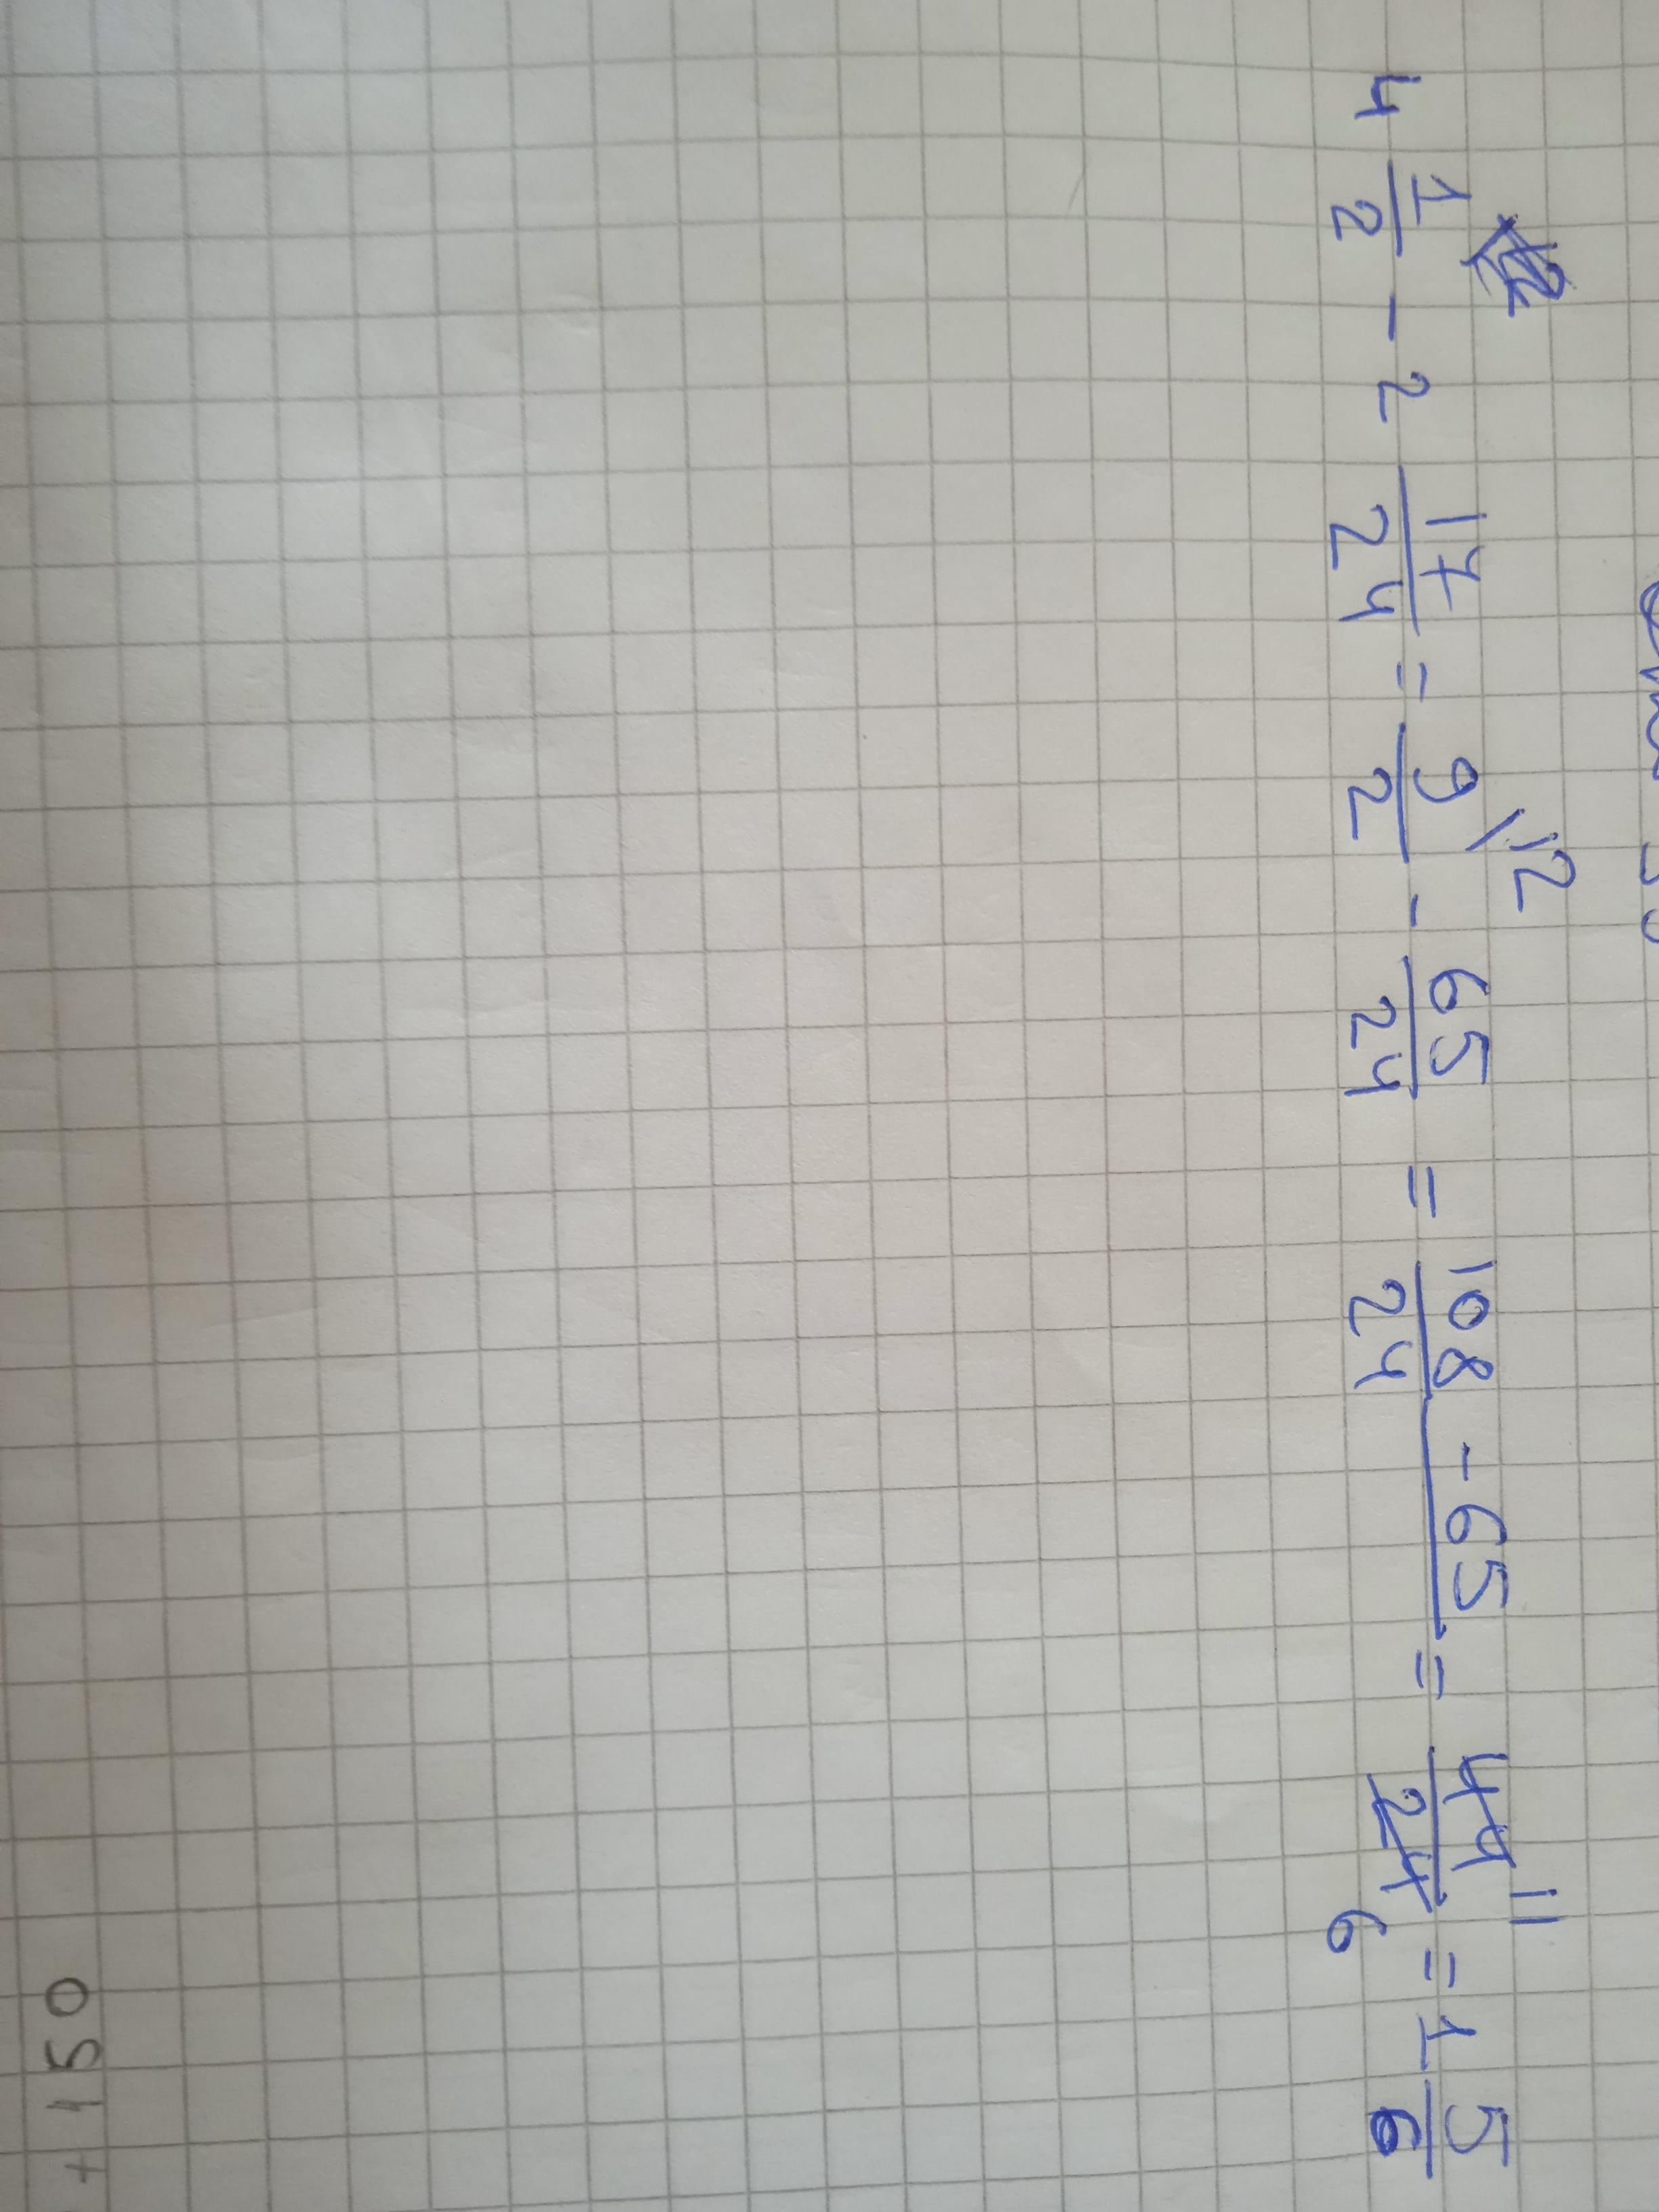 4 1/2 - 2 17/24 = 9\12/2 - 65/24 = 108 - 65/24 = 44 11/24 6 = 1 5/6
+ 150